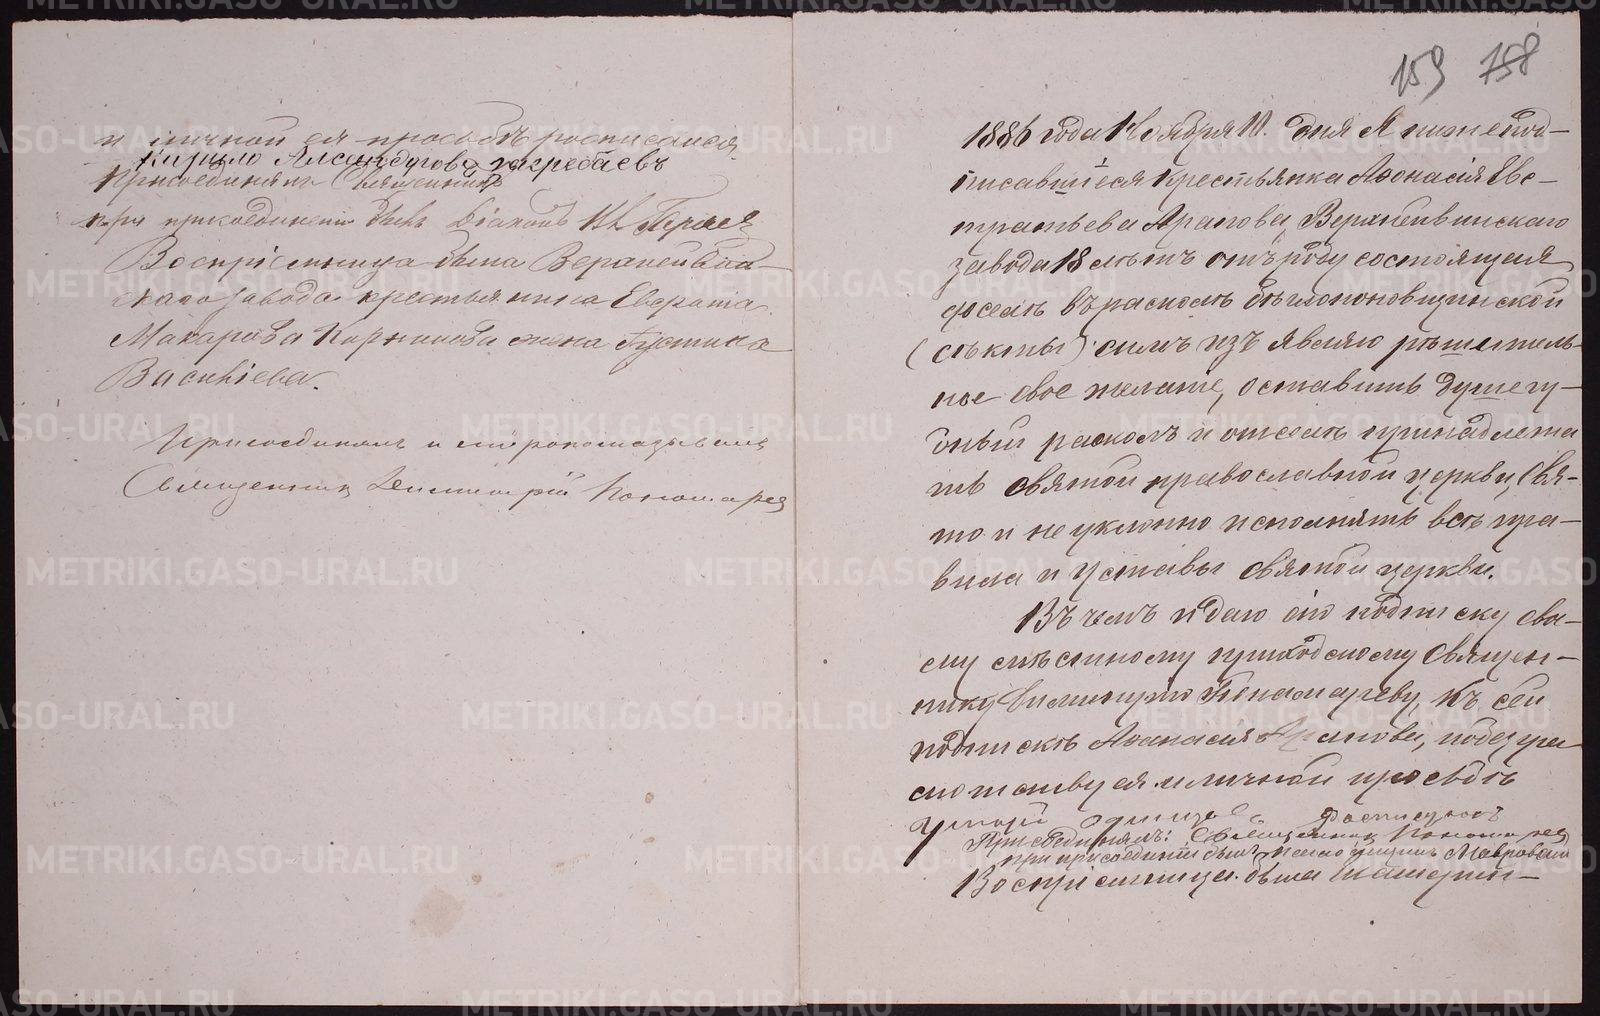 и личной ея просьбѣ росписался
Кирило Александрова
Присоединялъ Священникъ
при присоединении былъ Діаконъ
Воспріемница была Верхнейвин-
скаго завода крестьянина Евграфа
Макарова Корюкова жена Густина
Васильева.
Присоединялъ и мѵропомазывалъ
Священникъ Димитрій Пономарев
159 758
1886 года Ноября 10. дня Я нижепод-
писавшиеся крестьянка Афонасія Евс-
тратьева Арапова, Верхнейвинскаго
завода 18 лѣтъ отъ роду состоящая
доселѣ въ расколѣ бѣглопоповщинской
(сѣкты) симъ изъявляю рѣшитель-
ное свое желание, оставить душегу-
бный расколъ и отселѣ принадлежа
ть святой православной церкви, Свя-
то и неуклонно исполнять всѣ пра-
вила и уставы святой церкви.
Въ чемъ и даю сію подписку сво-
ему мѣстному приходскому Священ-
нику Димитрию Пономареву, Къ сей
подпискѣ Афанасия Арапова, по безгра
мотству ея и личной просьбѣ
росписулся
Присоединялъ: Священник Пономарев
при присоединении былъ псаломщикъ
Воспріемница была